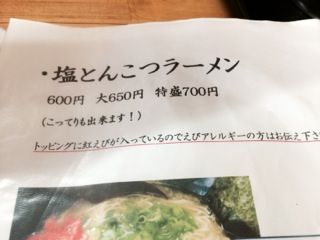 ・塩とんこつラーメン
600円 大650円 特盛700円
(こってりも出来ます!)
トッピングに紅えびが入っているのでえびアレルギーの方はお伝え下さ